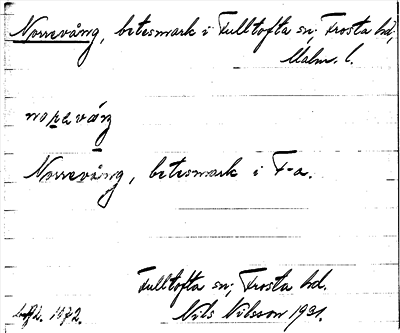 Norrevång, betesmark i Fulltofta sn; Frosta hd,
Malm. l.
noravåŋ
Norrevång, betesmark i F-a.
Fulltofta sn; Frosta hd.
Nils Nilsson 1931.